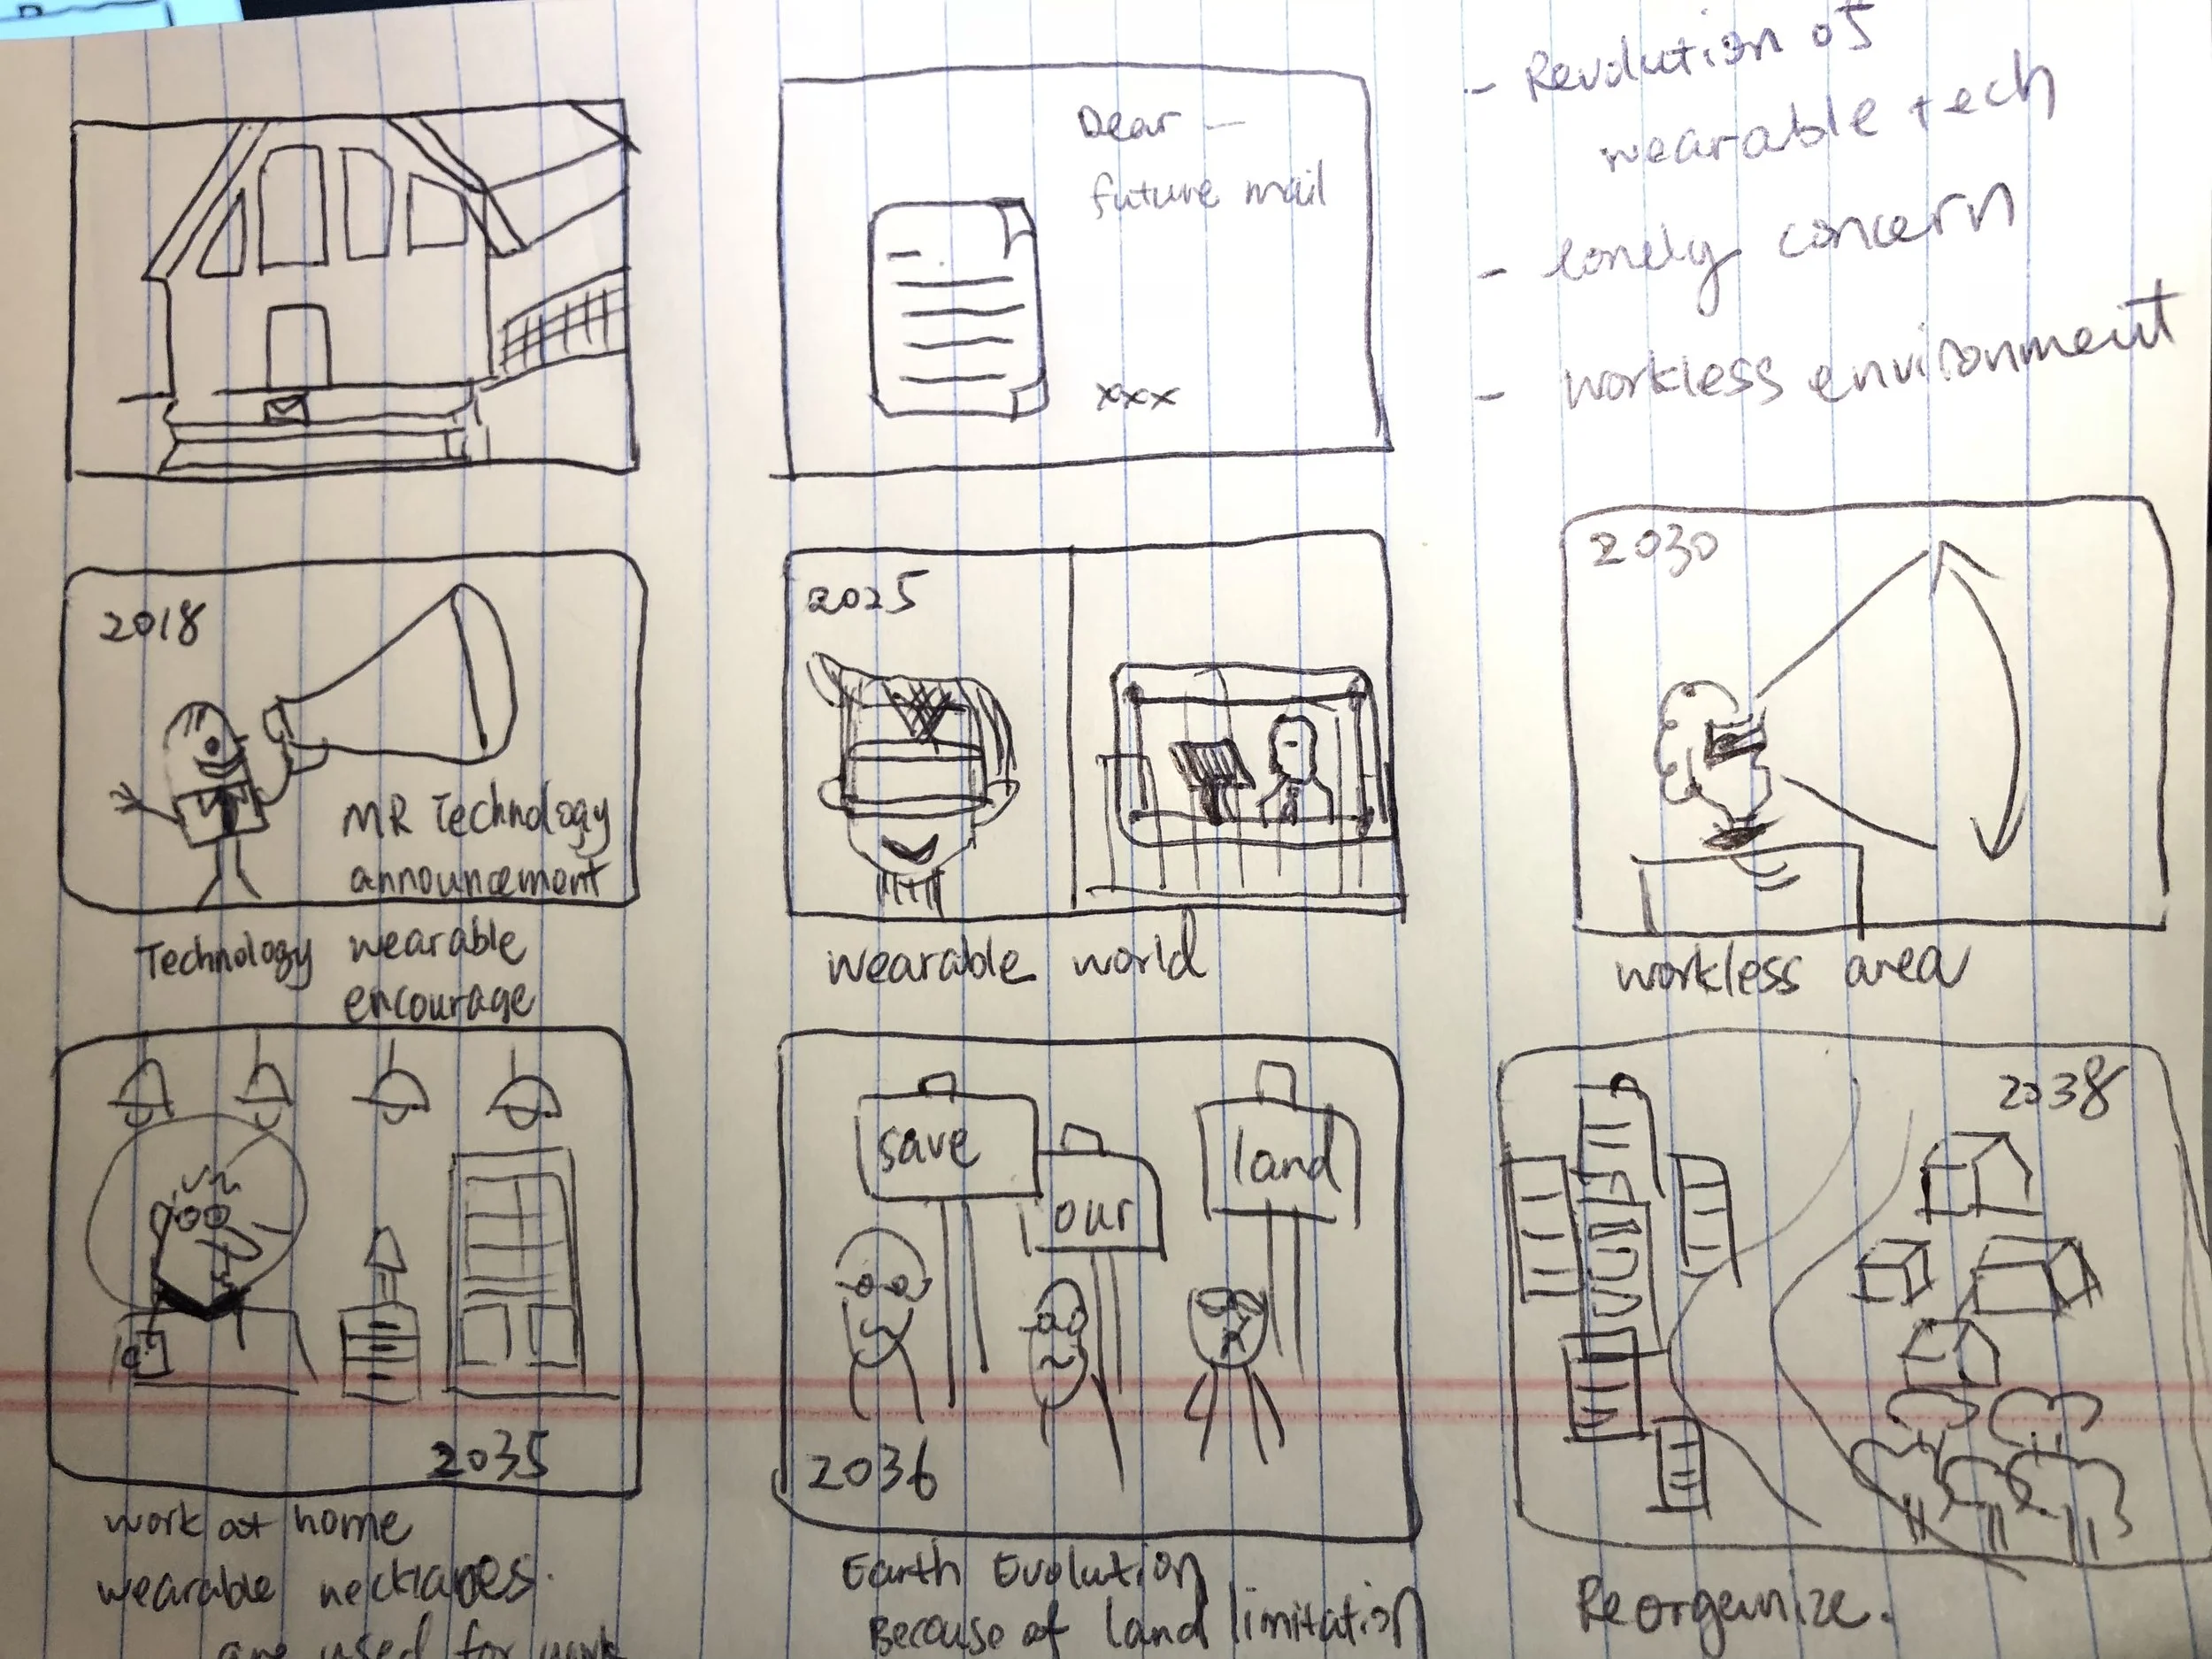 Dear —
future mail
xxx
- Revolution of
wearable tech
- lonely concern
- workless environment
2018
MR Technology
announcement
Technology wearable
encourage
2025
wearable world
2030
workless area
2035
work at home
wearable necklaces.
are used for work
save
our
land
2036
Earth Evolution
Because of land limitation
2038
Reorganize.